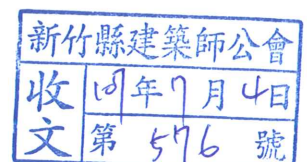 新竹縣建築師公會
收文
107年7月4日
第 576 號